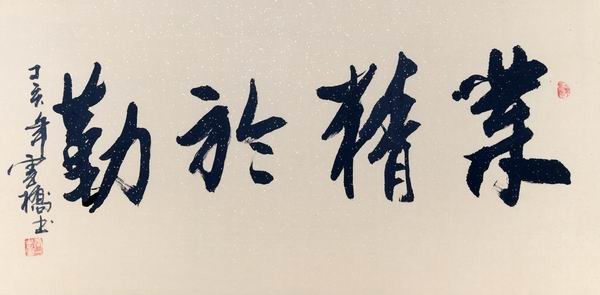 業精於勤
丁亥年雲橋書